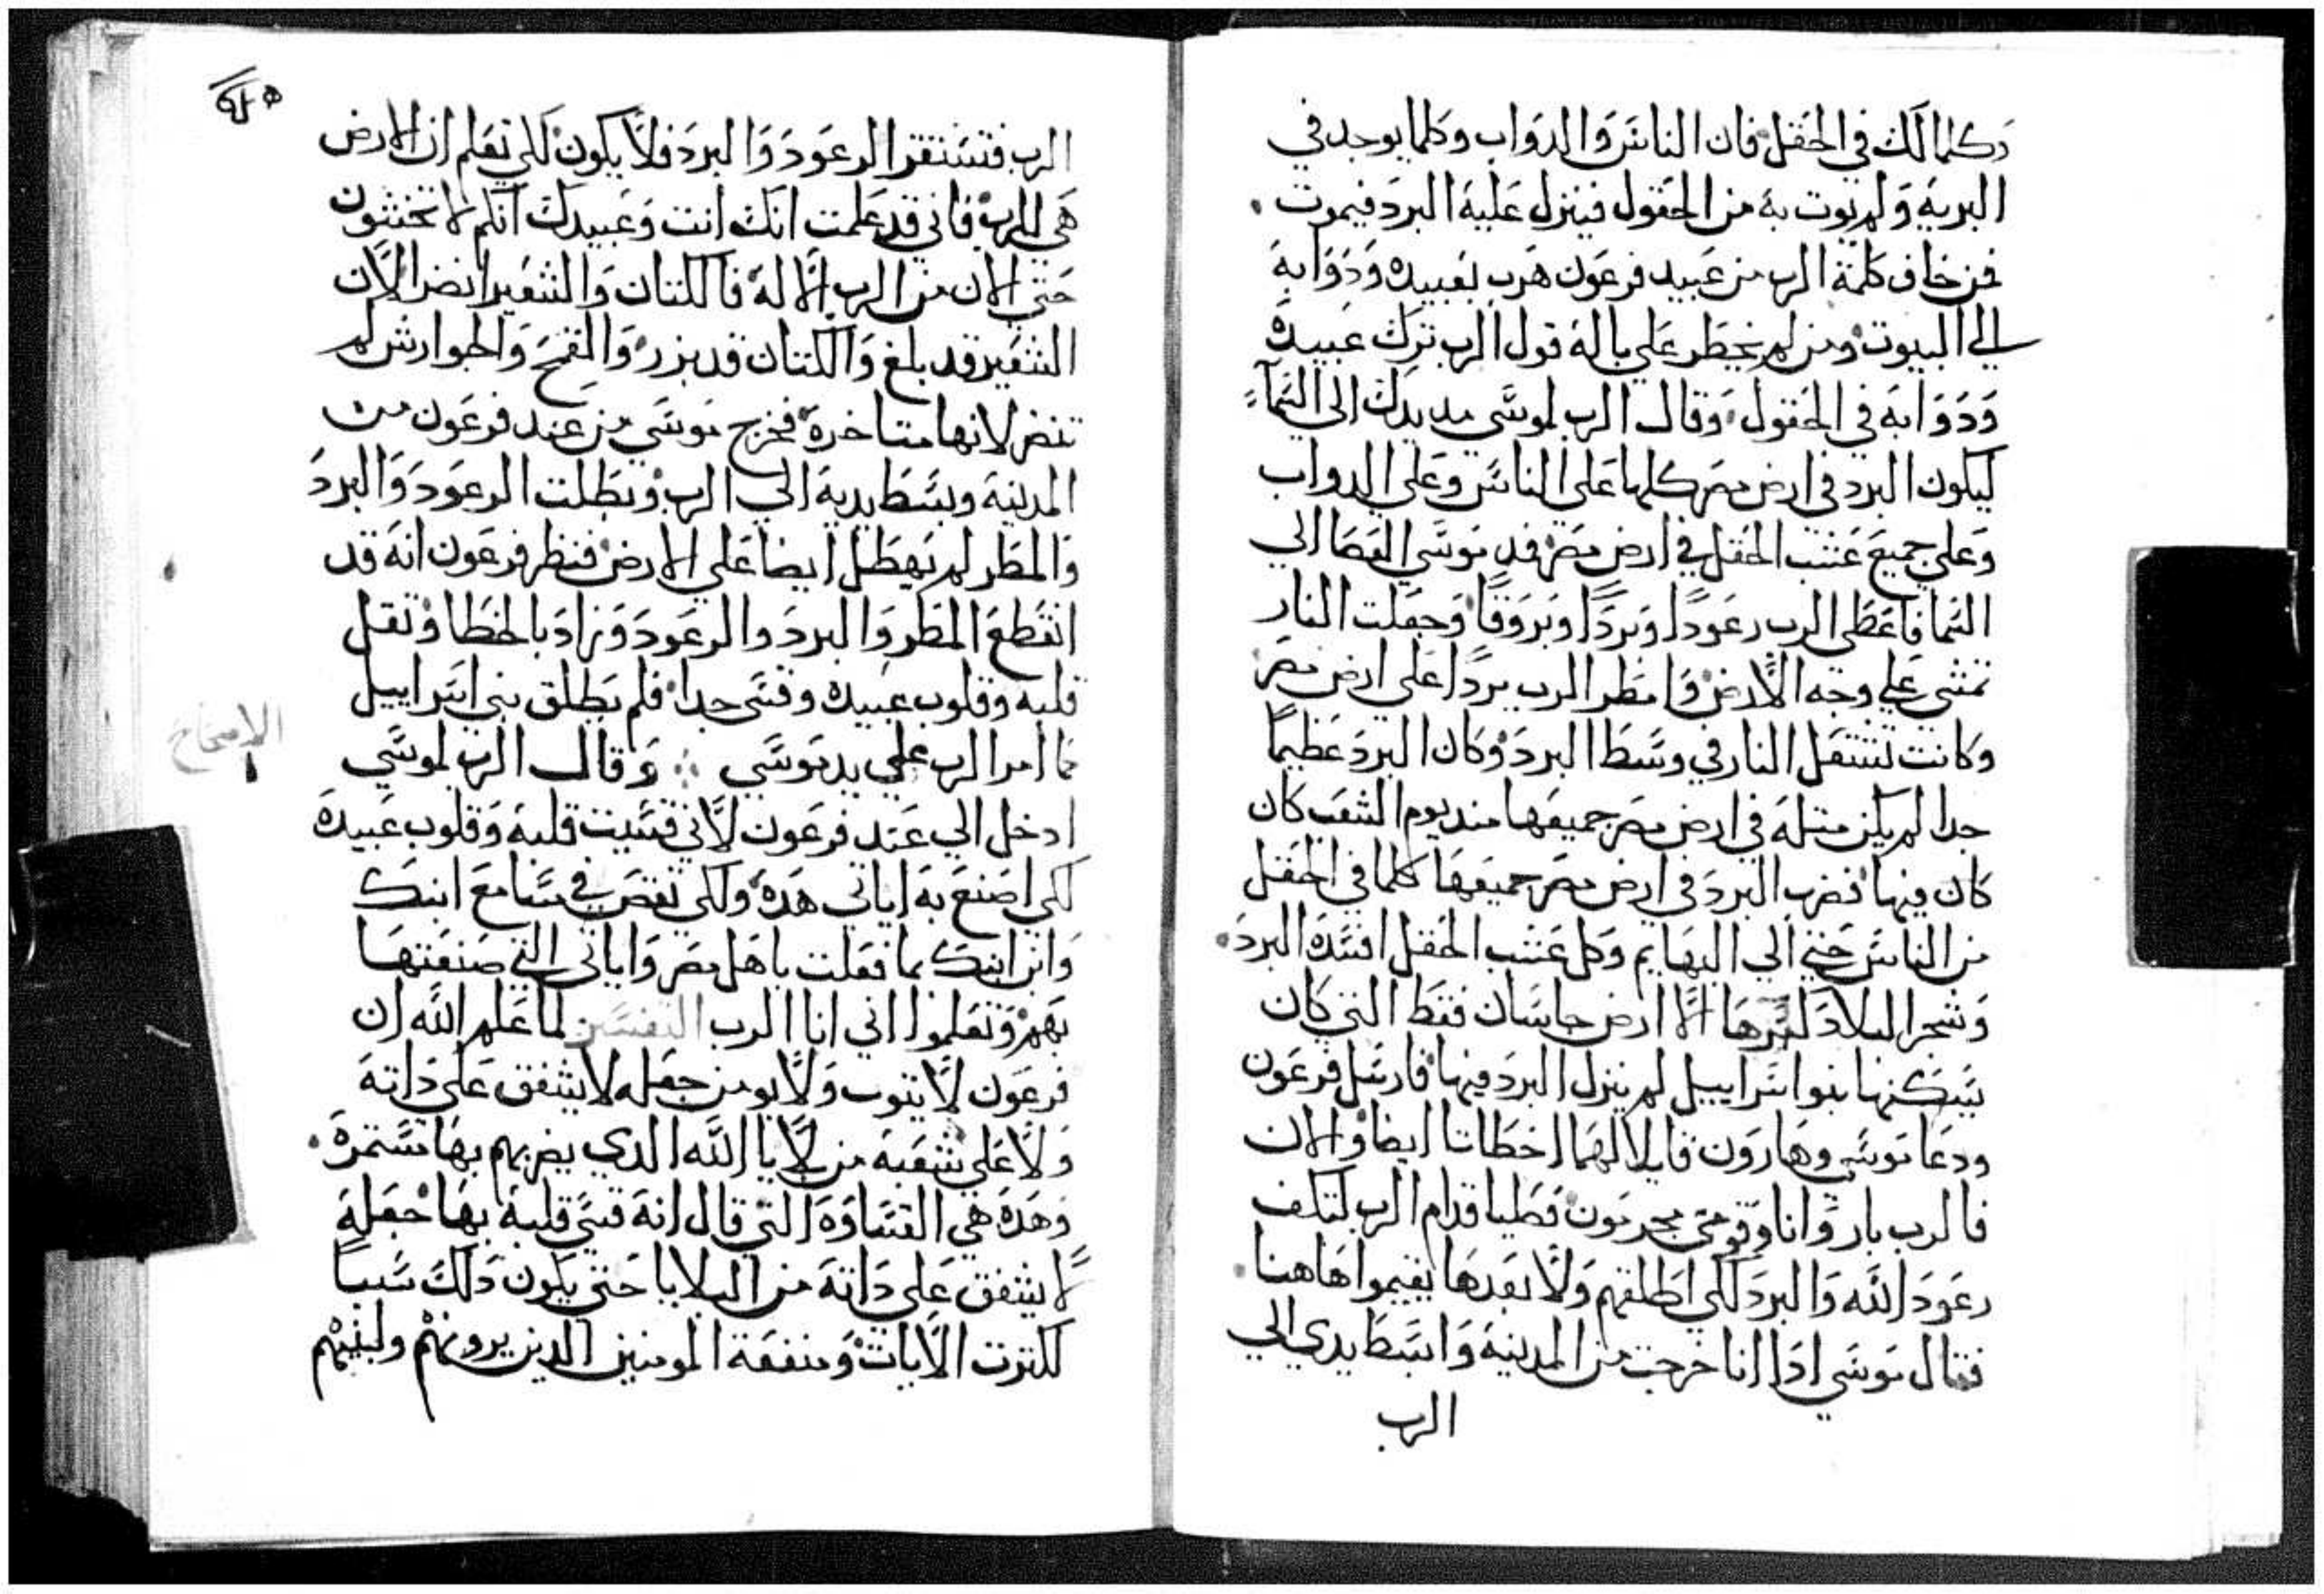 وكلما لك في الحقل فان الناس والدواب وكلما يوجد في
البرية ولم يوت به من الحقول فينزل عليه البرد فيموت.
فمن خاف كلمة الرب من عبيد فرعون هرب بعبيده ودوابه
الي البيوت ومن لم يخطر علي باله قول الرب ترك عبيده
ودوابه في الحقول وقال الرب لموسي مد يدك الي السماء
ليكون البرد في ارض مصر كلها علي الناس وعلي الدواب
وعلي جميع عشب الحقل في ارض مصر فمد موسي العصا الي
السما فاعطي الرب رعودًا وبردًا وبروقًا وجعلت النار
تمشي علي وجه الارض وامطر الرب بردًا علي ارض مصر
وكانت تشتعل النار في وسط البرد وكان البرد عظيمًا
جدا لم يكن مثله في ارض مصر جميعها مند يوم الشعب كان
كان فيها فضرب البرد في ارض مصر جميعها كلما في الحقل
من الناس حتي الي البهايم وكل عشب الحقل افسده البرد.
وشجر البلاد كسرها الا ارض جاسان فقط التي كان
يسكنها بنو اسراييل لم ينزل البرد فيها فارسل فرعون
ودعا موسي وهارون قايلا لهما اخطات ايضا والان
فالرب بار وانا وقومي مجرمون فصليا قدام الرب لتكف
رعود الله والبرد لكي اطلقهم ولا بعدها يقيموا هاهنا.
فقال موسي ادا انا خرجت من المدينة وابسط يدي الي
الرب
الرب فتستقر الرعود والبرد فلا يكون لكي تعلم ان الارض
هي للرب فاني قد علمت انك انت وعبيدك انكم لا تخشون
حتي الان من الرب الاله فالكتان والشعير انضر الان
الشعير قد بلغ والكتان قد بزر والقمح والجوارش لم
تنضر لانها متاخرة فخرج موسي من عند فرعون من
المدينة وبسط يديه الي الرب وبطلت الرعود والبرد
والمطر لم يهطل ايضا علي الارض فنظر فرعون انه قد
انقطع المطر والبرد والرعود وزاد بالخطا وثقل
قلبه وقلوب عبيده وقسي جدا فلم يطلق بني اسراييل
كما امر الرب علي يد موسي وقال الرب لموسي
الاصحاح
ادخل الي عند فرعون لاني قسيت قلبه وقلوب عبيده
لكي اصنع به اياتي هده ولكي تقص في مسامع ابنك
وابن ابنك بما فعلت باهل مصر واياتي التي صنعتها
بهم وتعلموا اني انا الرب التفسير لما علم الله ان
فرعون لا يتوب ولا يومن جعله لا يشفق علي داته
ولا علي شعبه من البلايا الله الدي يضربهم بها مستمرة.
وهده هي القساوة التي قال انه قسي قلبه بها جعله
لا يشفق علي داته من البلايا حتي يكون دلك سببا
لكترت الايات ومنفعة المومنين الدين يرونهم ولبنيهم